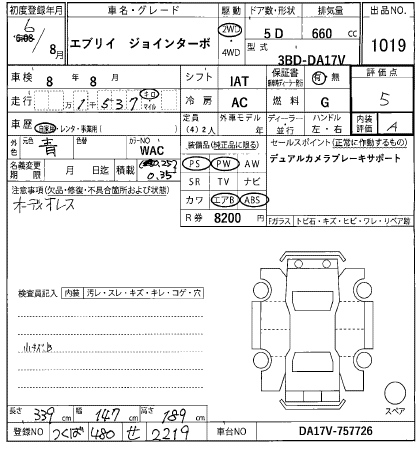 初度登録年月 車名・グレード 駆動 ドア数・形状 排気量 出品NO.
6 8月 エブリイ ジョインターボ 2WD 4WD 5D 660 cc 1019
型式 3BD-DA17V
車検 8年 8月 シフト IAT 保証書 有・無 評価点
走行 万1千537 キロ マイル 冷房 AC 燃料 G 5
車歴 自家用・レンタ・事業用( ) 定員 (4)2人 外車モデル 年 ディーラー・並行 ハンドル 左・右 内装評価 A
外色 元色 青 色替 カラーNO WAC 装備品(純正品に限る) セールスポイント(正常に作動するもの)
名義変更期限 月 日 積載 0.35 PS PW AW デュアルカメラブレーキサポート
注意事項(欠品・修復・不具合箇所および状態) SR TV ナビ
オーディオレス カワ エアB ABS
R券 8200 Fガラス トビ石・キズ・ヒビ・ワレ・リペア跡
検査員記入 内装 汚レ・スレ・キズ・キレ・コゲ・穴
小キズB
スペア
長さ 339 cm 幅 147 cm 高さ 189 cm
登録NO つくば 480 せ 2219 車台NO DA17V-757726